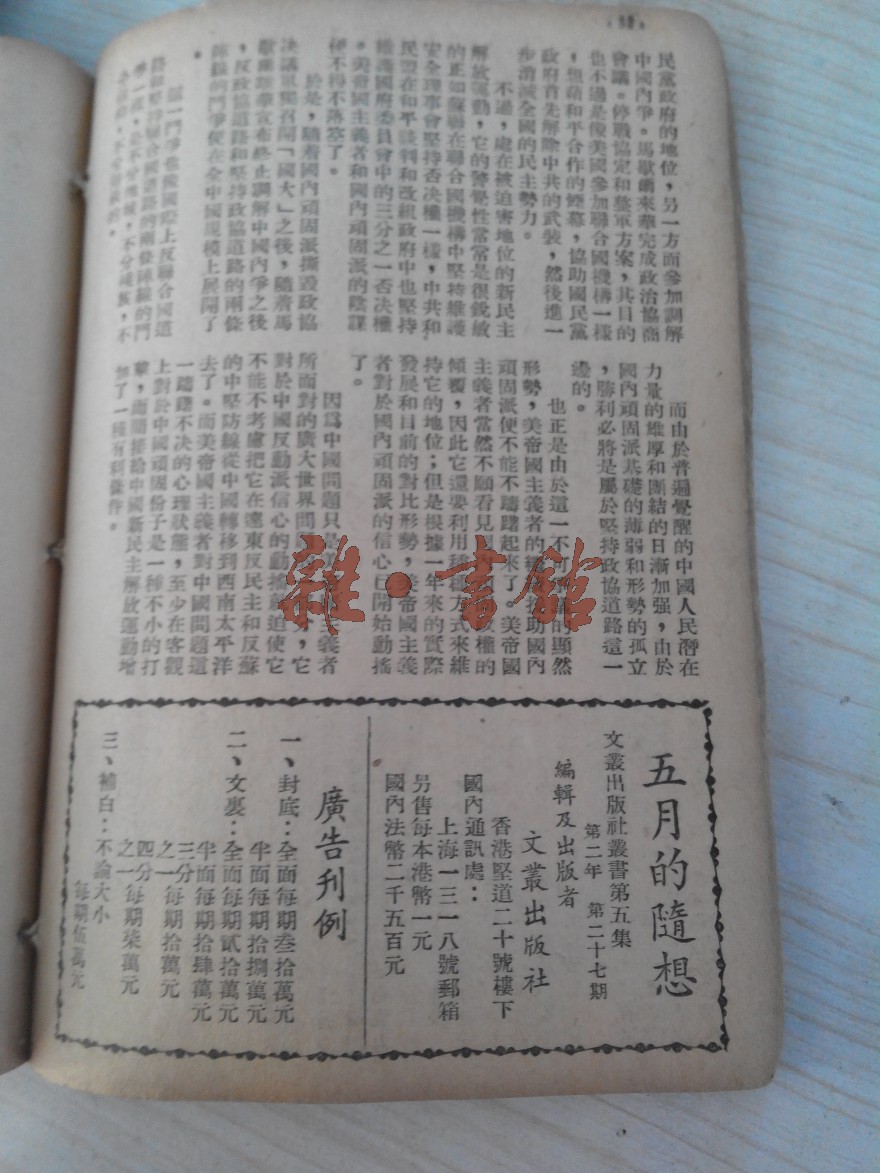 民黨政府的地位，另一方面參加調解
中國內爭。馬歇爾來華完成政治協商
會議。停戰協定和整軍方案，其目的
也不過是像美國參加聯合國機構一樣
，想藉和平合作的煙幕，協助國民黨
政府首先解除中共的武裝，然後進一
步消滅全國的民主勢力。
不過，處在被迫害地位的新民主
解放運動，它的警覺性常常是很銳敏
的正如蘇聯在聯合國機構中堅持維護
安全理事會堅持否决權一樣，中共和
民盟在和平談判和改組政府中也堅持
維護國府委員會中的三分之一否决權
。美帝國主義者和國內頑固派的陰謀
便不得不落空了。
於是，隨着國內頑固派撕毀政協
决議單獨召開「國大」之後，隨着馬
歇爾離華宣布終止調解中國內爭之後
，反政協道路和堅持政協道路的兩條
陣線的鬥爭便在全中國規模上展開了
。
這一鬥爭也像國際上反聯合國道
路和堅持聯合國道路的兩條陣線的鬥
爭一樣，是不分
而由於普遍覺醒的中國人民潛在
力量的雄厚和團結的日漸加强，由於
國內頑固派基礎的薄弱和形勢的孤立
，勝利必將是屬於堅持政協道路這一
邊的。
也正是由於這一不可
的顯然
形勢，美帝國主義者的繼續援助國內
頑固派便不能不躊躇起來了。美帝國
主義者當然不願看見國內
政權的
傾覆，因此它還要利用種種方式來維
持它的地位；但是根據一年來的實際
發展和目前的對比形勢，美帝國主義
者對於國內頑固派的信心已開始動搖
了。
因爲中國問題只是
主義者
所面對的廣大世界問題
分，它
對於中國反動派信心的動搖
迫使它
不能不考慮把它在遼東反民主和反蘇
的中堅防線從中國轉移到西南太平洋
去了。而美帝國主義者對中國問題這
一躊躇不决的心理狀態，至少在客觀
上對於中國頑固份子是一種不小的打
擊，而間接給中國新民主解放運動增
加了一種有利條件。
五月的隨想
文叢出版社叢書第五集
第二年 第二十七期
編輯及出版者
文叢出版社
香港堅道二十號樓下
國內通訊處：
上海一三一八號郵箱
另售每本港幣一元
國內法幣二千五百元
廣告刊例
一、封底：全面每期叁拾萬元
半面每期拾捌萬元
二、文裏：全面每期貳拾萬元
半面每期拾肆萬元
三分之一每期拾萬元
四分之一每期柒萬元
三、補白：不論大小
每期伍萬元
雜·書館